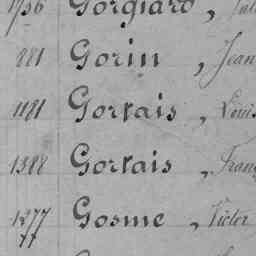 1736 Gorgiard,
881 Gorin, Jean
1181 Gortais, Louis
1388 Gortais, Fran
1377 Gosme, Victor